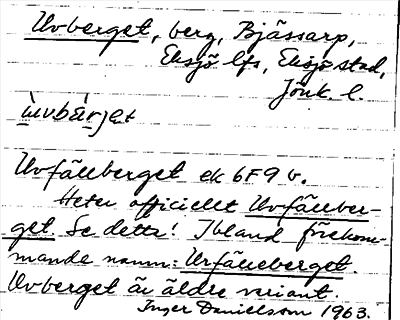 Uvberget, berg, Bjässarp,
Eksjö lfs, Eksjö stad,
Jönk. l.
ùvbár̥jet
Uvfälleberget ek 6F9b.
Heter officiellt Uvfälleber-
get. Se detta! Ibland förekom-
mande namn: Urfälleberget.
Uvberget är äldre variant.
Inger Danielsson 1963.